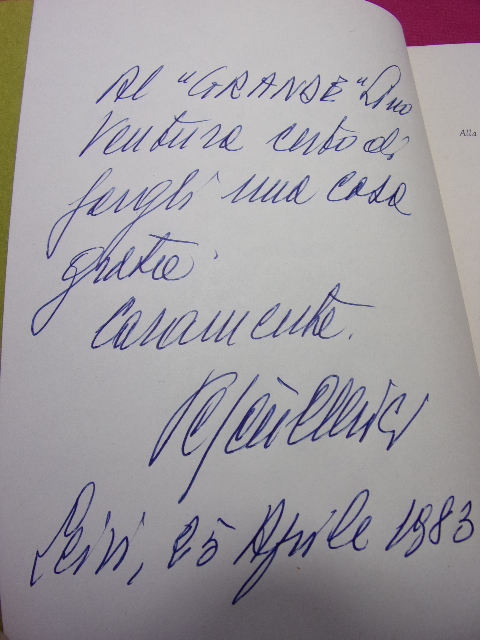 Al "GRANDE" Lino
Ventura certo di
fargli una cosa
grata.
Caramente.
25 Aprile 1983
Alla